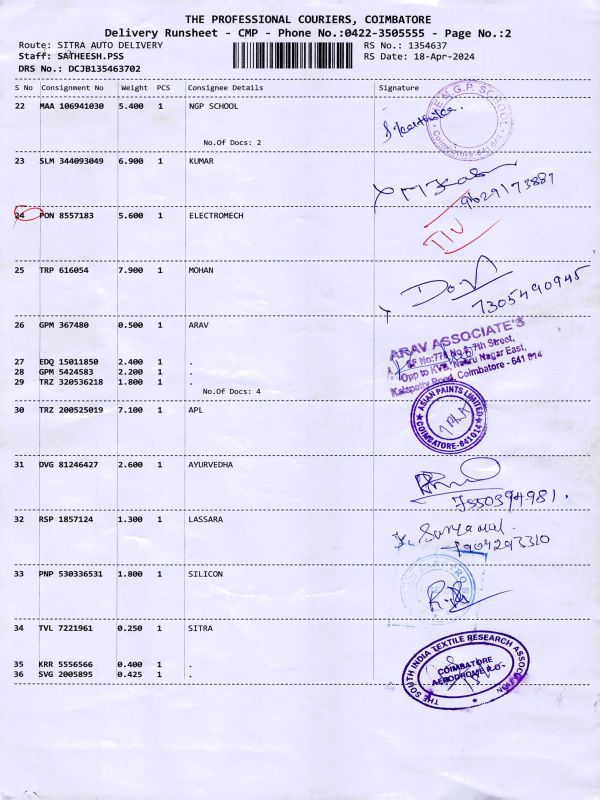 THE PROFESSIONAL COURIERS, COIMBATORE
Delivery Runsheet - CMP - Phone No.:0422-3505555 - Page No.:2
Route: SITRA AUTO DELIVERY RS No.: 1354637
Staff: SATHEESH.PSS RS Date: 18-Apr-2024
DRS No.: DCJB135463702
S No Consignment No Weight PCS Consignee Details Signature
22 MAA 106941030 5.400 1 NGP SCHOOL
No.Of Docs: 2
23 SLM 344093049 6.900 1 KUMAR
9629173887
24 PON 8557183 5.600 1 ELECTROMECH
25 TRP 616054 7.900 1 MOHAN
7305490945
26 GPM 367480 0.500 1 ARAV
ARAV ASSOCIATE'S
Opp to KVB, Nehru Nagar East,
Kalapatty Road, Coimbatore - 641 014
27 EDQ 15011850 2.400 1 .
28 GPM 5424583 2.200 1 .
29 TRZ 320536218 1.800 1 .
No.Of Docs: 4
30 TRZ 200525019 7.100 1 APL
ASIAN PAINTS LIMITED
COIMBATORE-641014
31 DVG 81246427 2.600 1 AYURVEDHA
7550394981.
32 RSP 1857124 1.300 1 LASSARA
7904293310
33 PNP 530336531 1.800 1 SILICON
34 TVL 7221961 0.250 1 SITRA
THE SOUTH INDIA TEXTILE RESEARCH ASSOCIATION
COIMBATORE
AERODROME P.O.
35 KRR 5556566 0.400 1 .
36 SVG 2005895 0.425 1 .